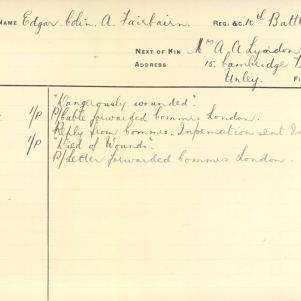 NAME Edgar Colin. A. Fairbairn. REG. &C. 10th Batt
NEXT OF KIN Mrs A. A Lyndon
ADDRESS 15. Cambridge
Unley.
"Dangerously wounded".
1/P P/Cable forwarded Commrs London.
Reply from Commrs. Information sent
1/P "Died of Wounds".
P/Letter forwarded Commrs London.